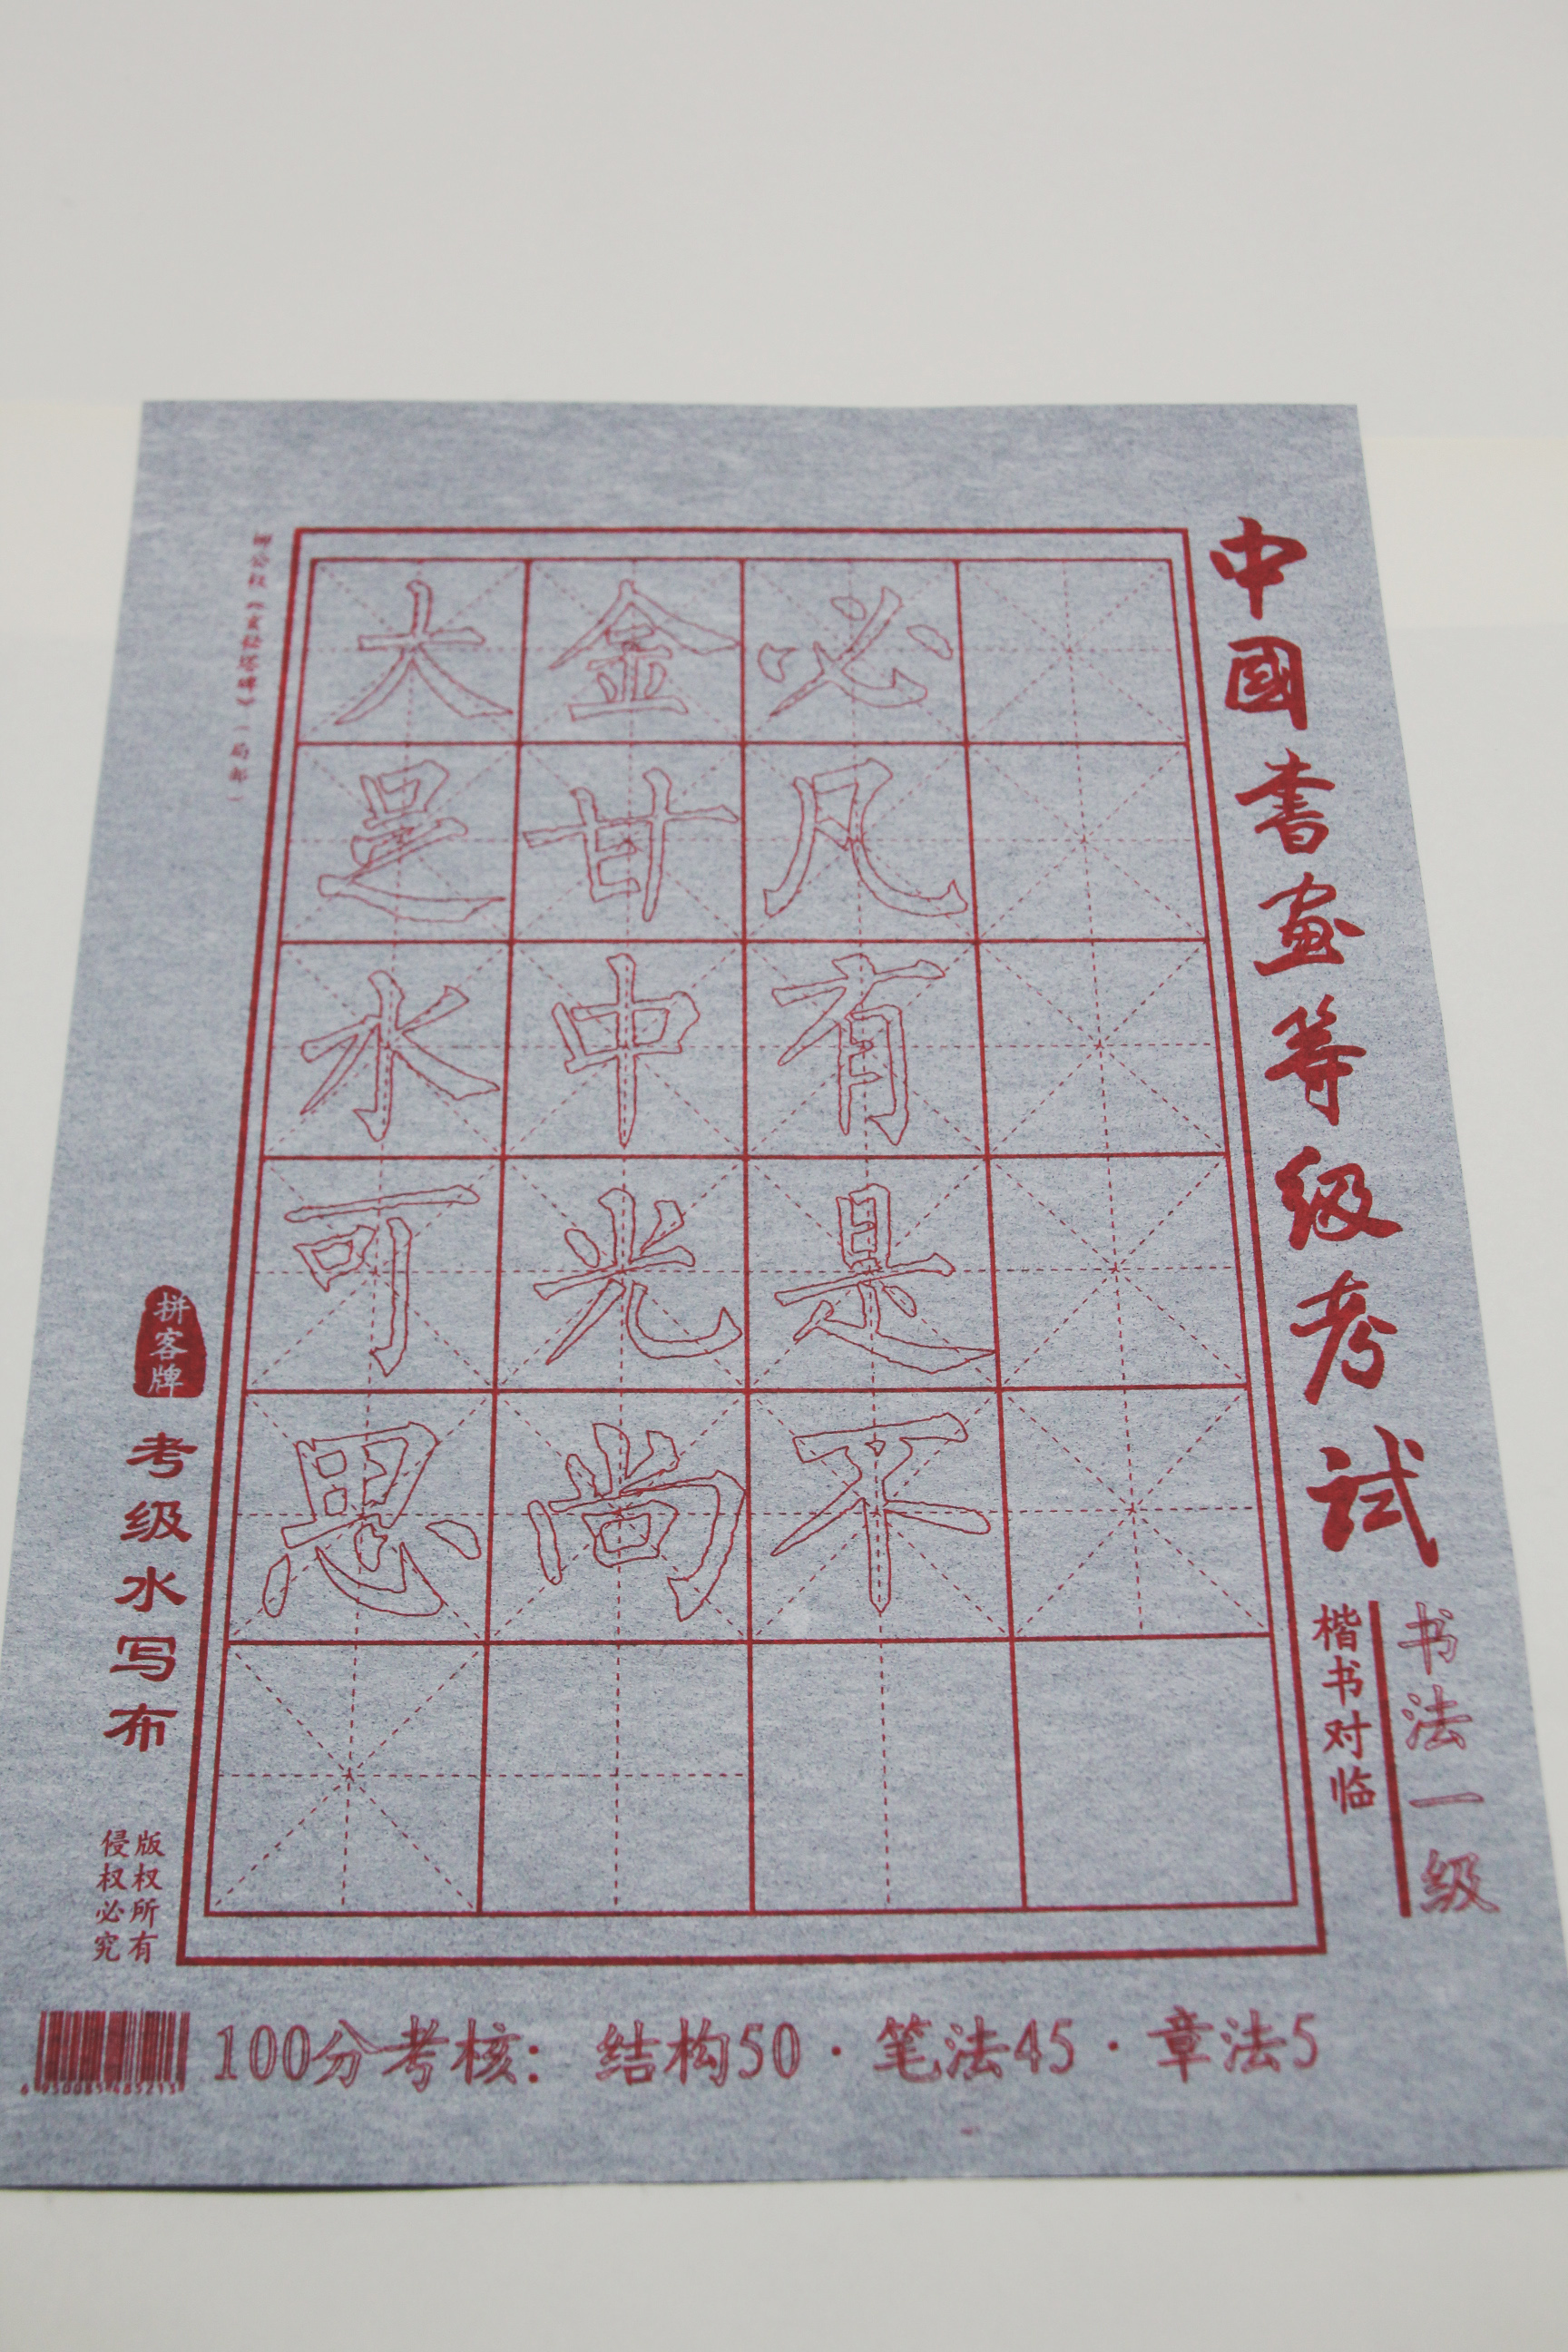 中國書畫等级考试
书法一级
楷书对临
必凡有是不
金甘中光尚
大是水可思
柳公权《玄秘塔碑》（局部）
拼客牌
考级水写布
版权所有
侵权必究
100分考核：结构50·笔法45·章法5